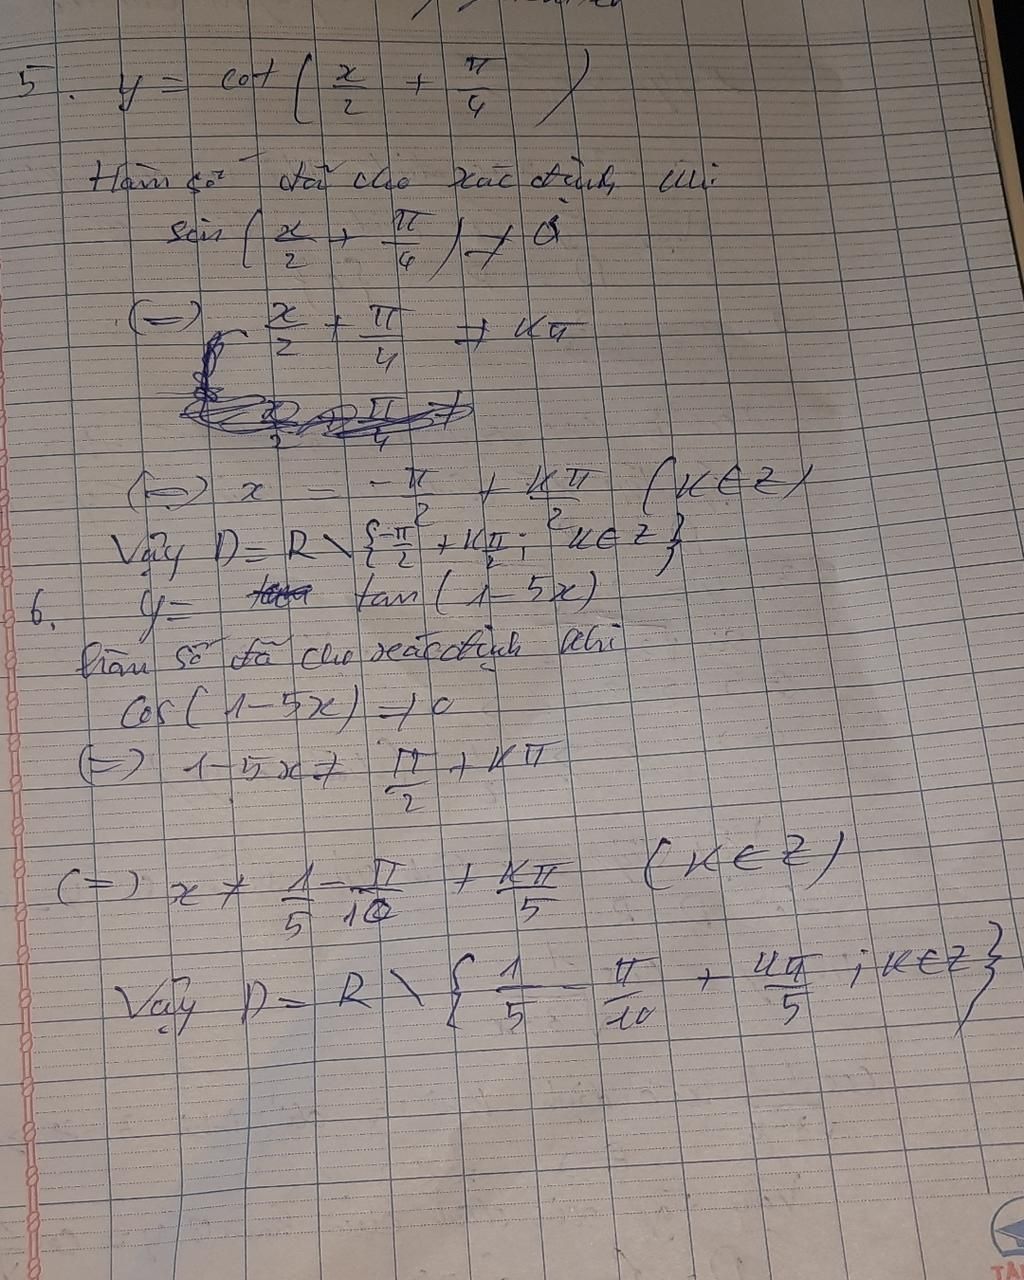 5. y = cot ( x/2 + π/4 )
Hàm số đã cho xác định khi
sin ( x/2 + π/4 ) ≠ 0
(=) x/2 + π/4 ≠ kπ
(=) x = -π/2 + kπ/2 (k ∈ Z)
Vậy D = R \ { -π/2 + kπ/2 ; k ∈ Z }
6. y = tan ( 1 - 5x )
Hàm số đã cho xác định khi
cos ( 1 - 5x ) ≠ 0
(=) 1 - 5x ≠ π/2 + kπ
(=) x ≠ 1/5 - π/10 + kπ/5 (k ∈ Z)
Vậy D = R \ { 1/5 - π/10 + kπ/5 ; k ∈ Z }